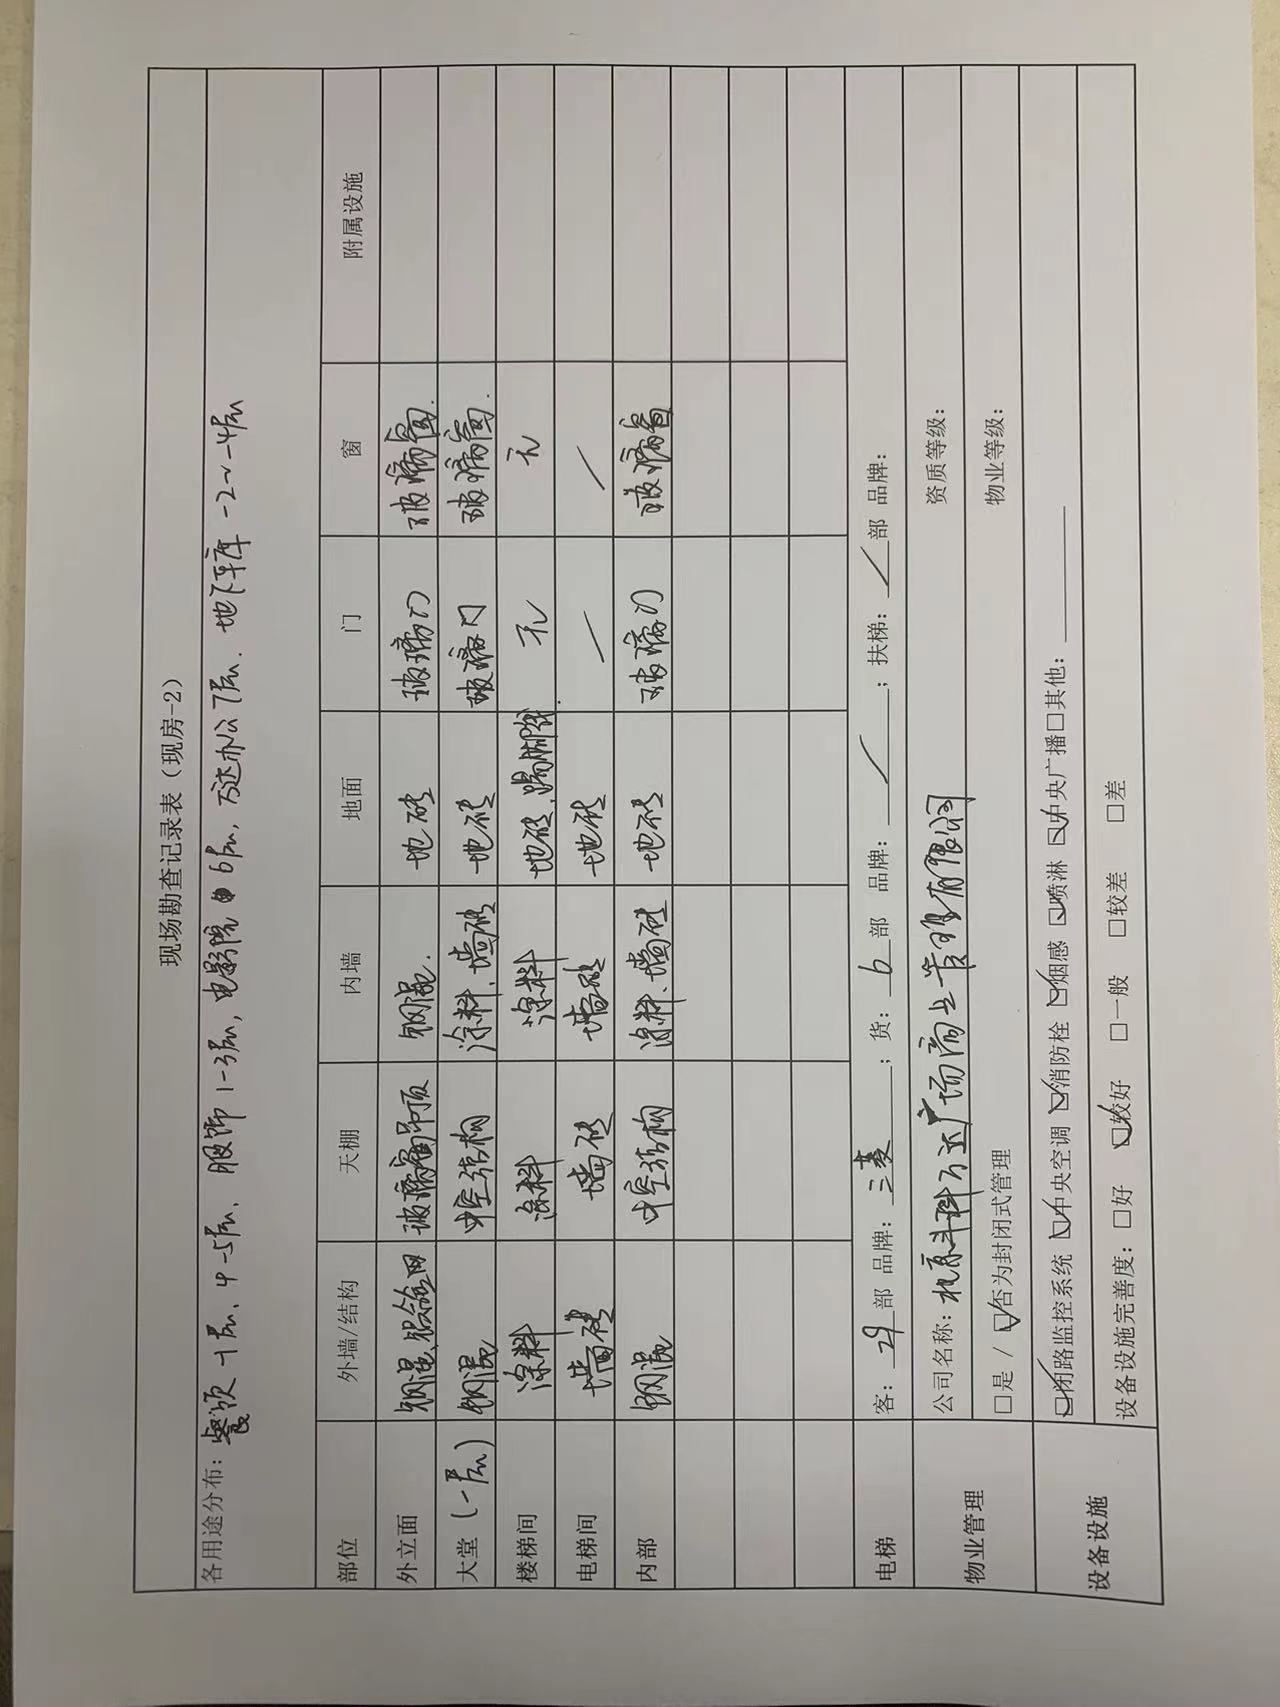 现场勘查记录表（现房-2）
各用途分布：餐饮 -1层、4-5层、服饰 1-3层，电影院 6层，万达办公 7层、地下车库 -2~-4层
部位 外墙/结构 天棚 内墙 地面 门 窗 附属设施
外立面 钢混、铝合 玻璃吊顶 钢混. 地砖 玻璃门 玻璃窗.
大堂（一层） 钢混 中空结构 涂料、墙砖 地砖 玻璃门 玻璃窗.
楼梯间 涂料 涂料 涂料 地砖、踢脚线 无 无
电梯间 墙砖 墙砖 墙砖 地砖 / /
内部 钢混 中空结构 涂料、墙砖 地砖 玻璃门 玻璃窗
电梯 客：29部 品牌：三菱；货：6部 品牌：/；扶梯：/部 品牌：
物业管理 公司名称：北京丰科万达广场商业管理有限公司 资质等级：
□是 / ☑否为封闭式管理 物业等级：
设备设施 ☑闭路监控系统 ☑中央空调 ☑消防栓 ☑烟感 ☑喷淋 ☑中央广播□其他：
设备设施完善度：□好 ☑较好 □一般 □较差 □差